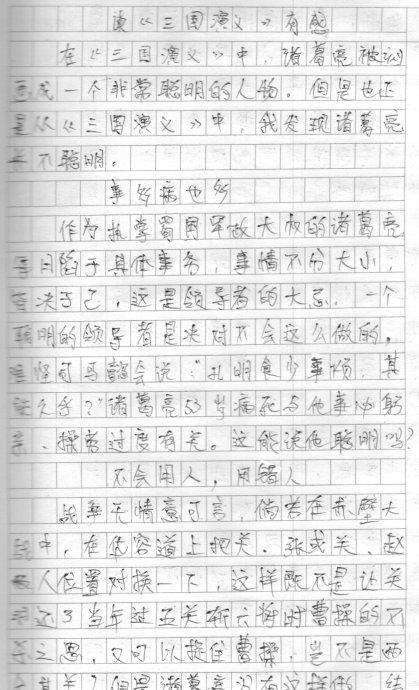 读《三国演义》有感
在《三国演义》中,诸葛亮被认
成一个非常聪明的人物。但是也正
是从《三国演义》中,我发现诸葛亮
并不聪明。
事多病也多
作为执掌蜀国军政大权的诸葛亮
日陷于具体事务,事情不分大小,
皆决于己,这是领导者的大忌。一个
聪明的领导者是决对不会这么做的。
难怪司马懿会说:“孔明食少事烦,其
能久乎?”诸葛亮53岁病死与他事必躬
亲、操劳过度有关。这能说他聪明吗?
不会用人,用错人
战争无情意可言,倘若在赤壁大
战中,在华容道上把关、张或关、赵
人位置对换一下,这样既不是让关
还了当年过五关斩六将时曹操的不
杀之恩,又可以捉住曹操,岂不是两
其美?但是诸葛亮没有这样做。结